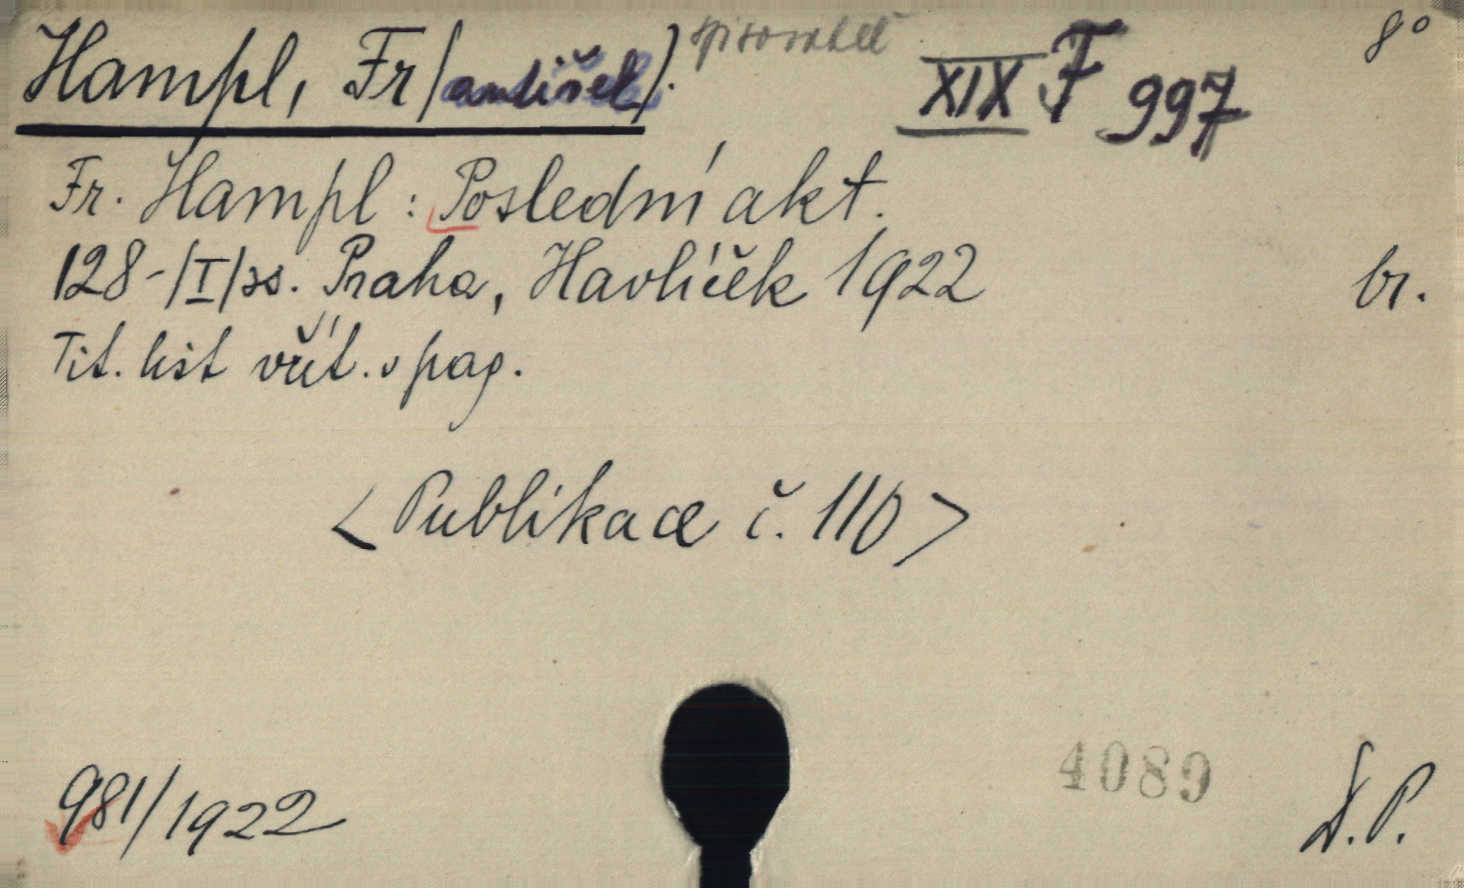 Hampl, Fr/antišek/. spisovatel XIX F 997 8°
Fr. Hampl: Poslední akt.
128-/I/ss. Praha, Havlíček 1922 br.
Tit. list vřít. v pag.
<Publikace č. 110>
4089
981/1922 D.P.